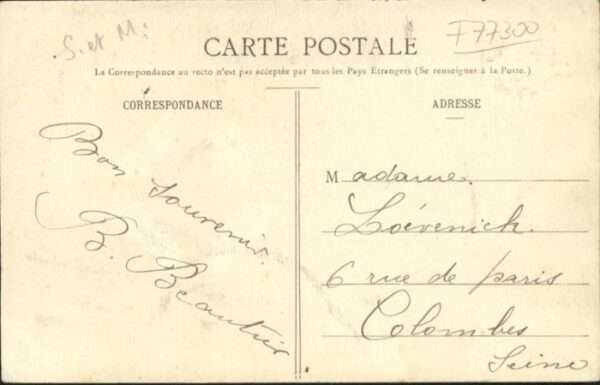 S. et M.
F77300
CARTE POSTALE
La Correspondance au recto n'est pas acceptée par tous les Pays Etrangers (Se renseigner à la Poste.)
CORRESPONDANCE
Bon souvenir.
B. Beautier
ADRESSE
Madame
Loévenich.
6 rue de paris
Colombes
Seine